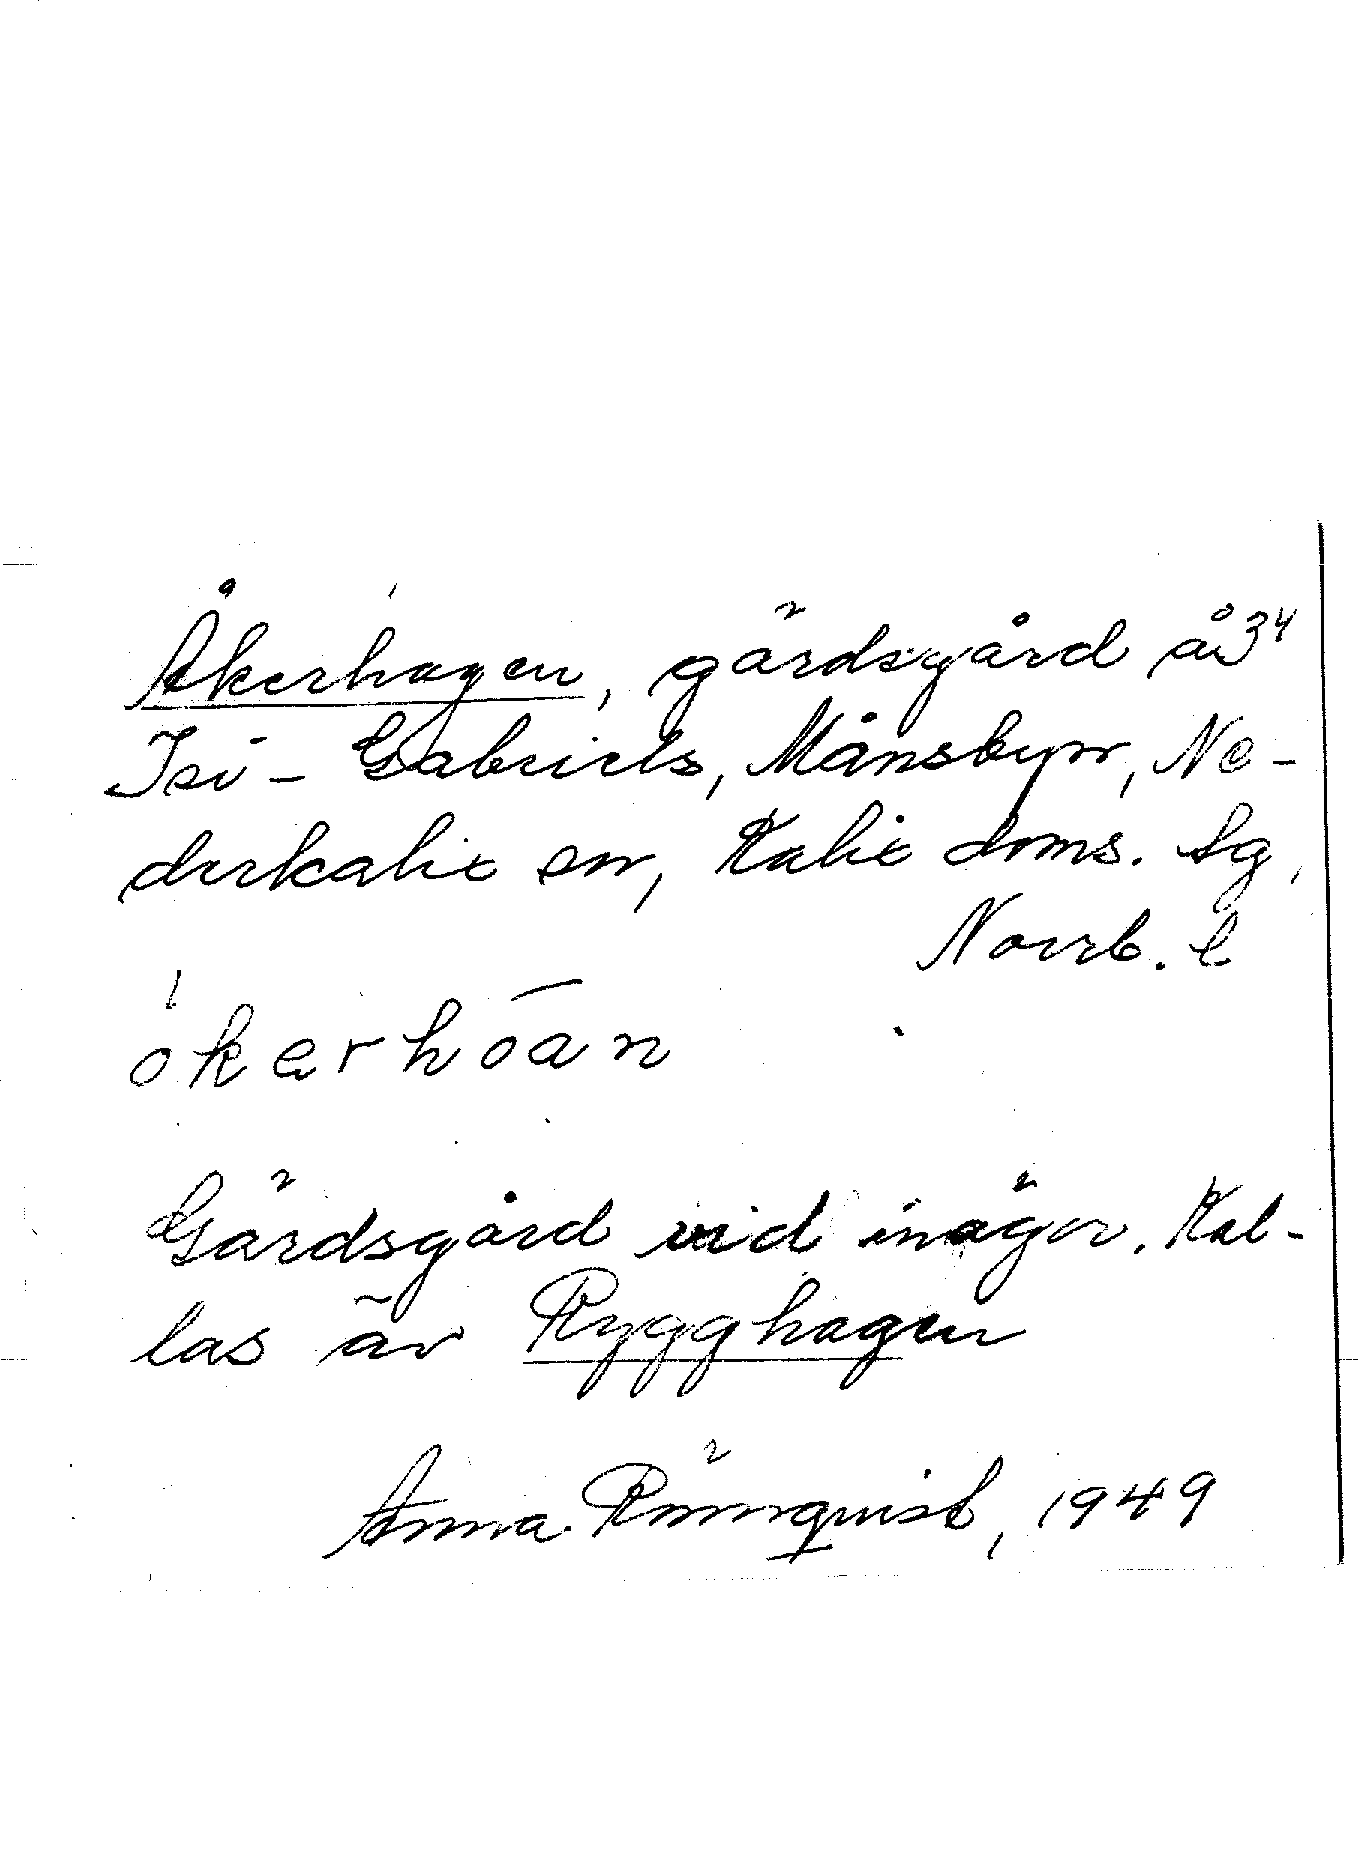 Åkerhagen, gärdsgård å 34
Isi-Gabriels, Månsbyn, Ne-
derkalix sn, Kalix doms. sg,
Norrb. l
ókerhōan
Gärdsgård vid inägor. Kal-
las äv Rygghagen
Anna Rönnqvist, 1949